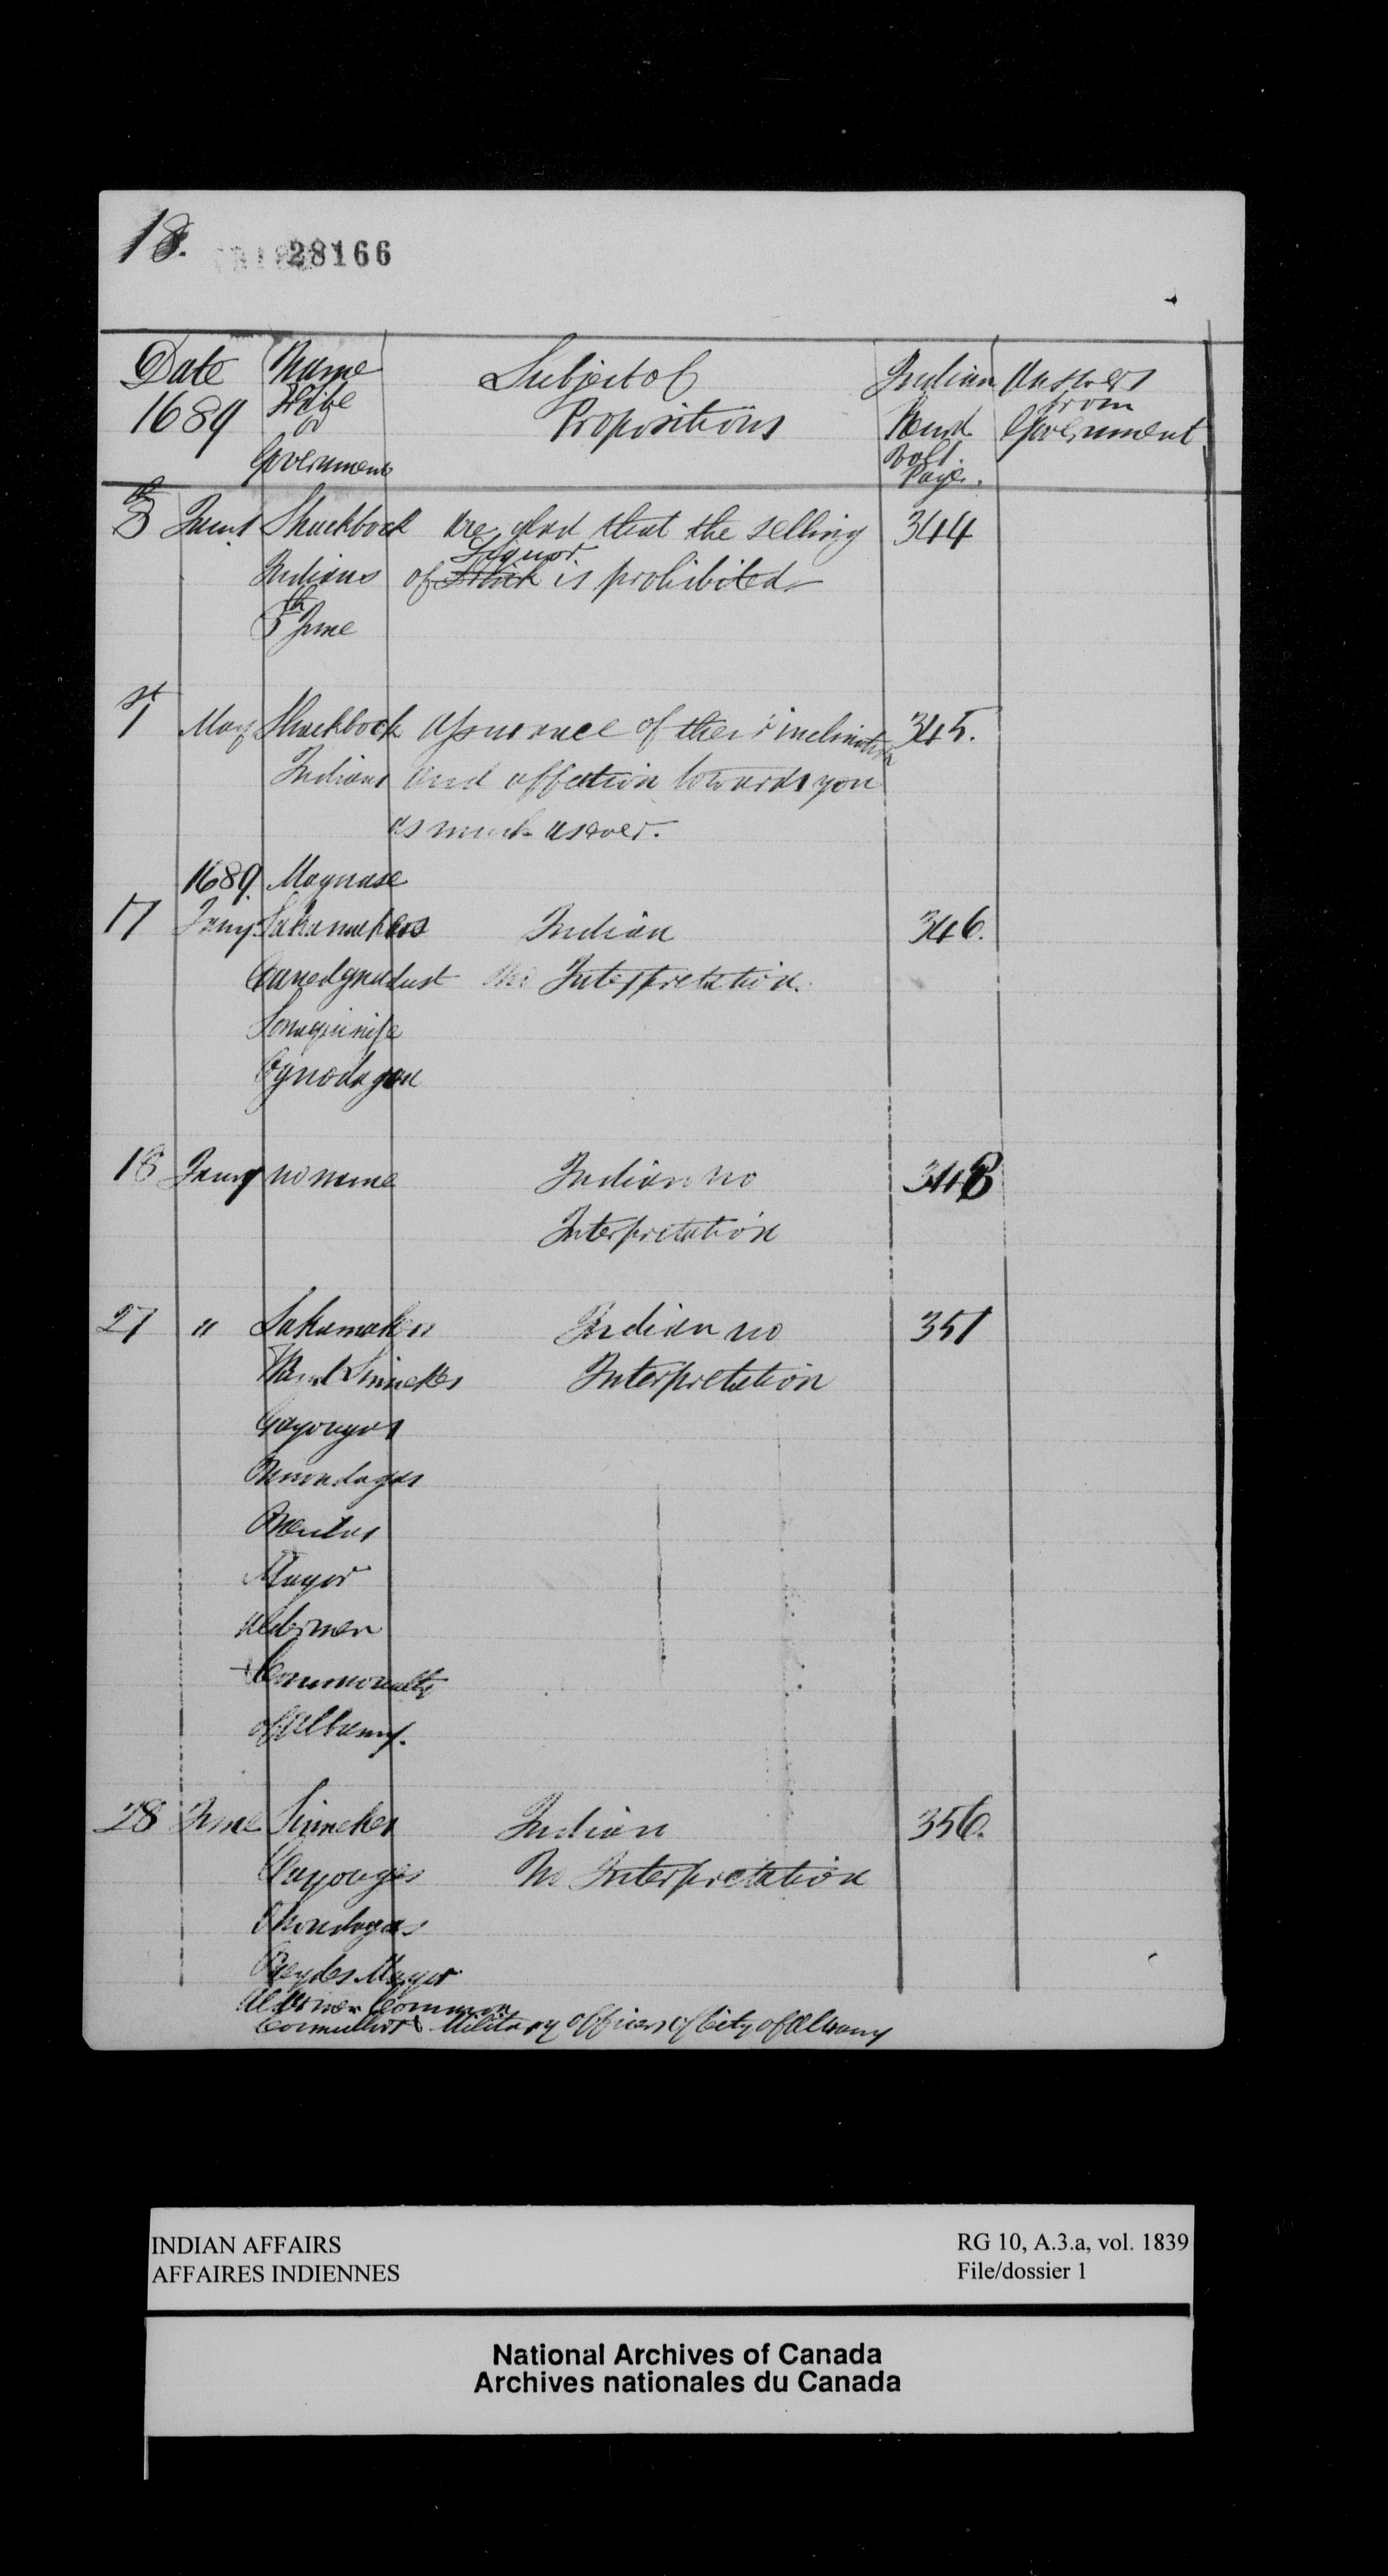 18.
28166
Date Name Subject of Indian Answers
1689 Tribe Propositions Recd from
or Vol 1. Government
Government Page.
5th June Shackbock are glad that the selling 344
Indians of Liquor is prohibited
5th June
1st May Shackbock Assurance of their inclination 345.
Indians and affection towards you
as much as ever.
1689 Maquase
17 Jany Sakamakers Indian 346.
no Interpretation.
18 Jany no name Indian no 348
Interpretation
27 " Sakamakers Indian no 351
Sinnekes Interpretation
Cayouges
Onnondages
Oneydes
Mayor
Aldermen
Commonalty
of Albany.
28 June Sinnekes Indian 356.
Cayouges No Interpretation
Onondages
Oneydes Mayor
Aldermen Common
Councillors & Military officers of City of Albany
INDIAN AFFAIRS RG 10, A.3.a, vol. 1839
AFFAIRES INDIENNES File/dossier 1
National Archives of Canada
Archives nationales du Canada